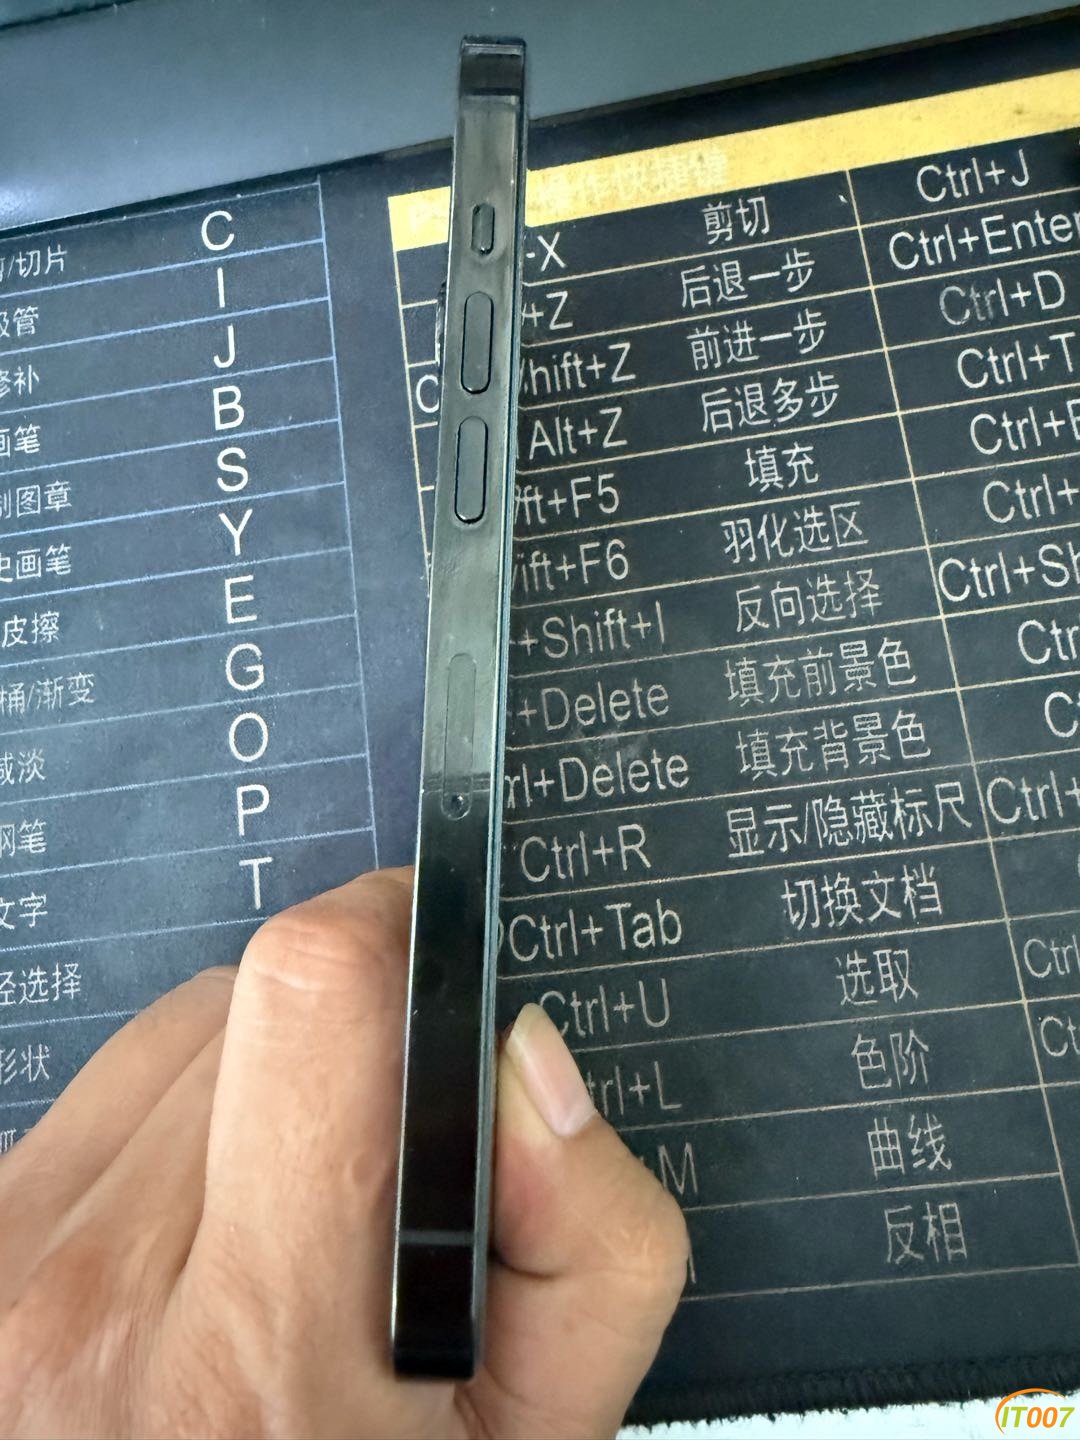 切片 C
I
J
画笔 B
图章 S
画笔 Y
皮擦 E
桶/渐变 G
减淡 O
钢笔 P
文字 T
选择
形状
操作快捷键
-X 剪切 Ctrl+J
+Z 后退一步 Ctrl+Enter
hift+Z 前进一步 Ctrl+D
Alt+Z 后退多步 Ctrl+T
ft+F5 填充
ift+F6 羽化选区 Ctrl+
+Shift+I 反向选择 Ctrl+Sh
+Delete 填充前景色 Ctr
rl+Delete 填充背景色
Ctrl+R 显示/隐藏标尺 Ctrl+
Ctrl+Tab 切换文档
Ctrl+U 选取 Ctrl
trl+L 色阶
+M 曲线
反相
IT007